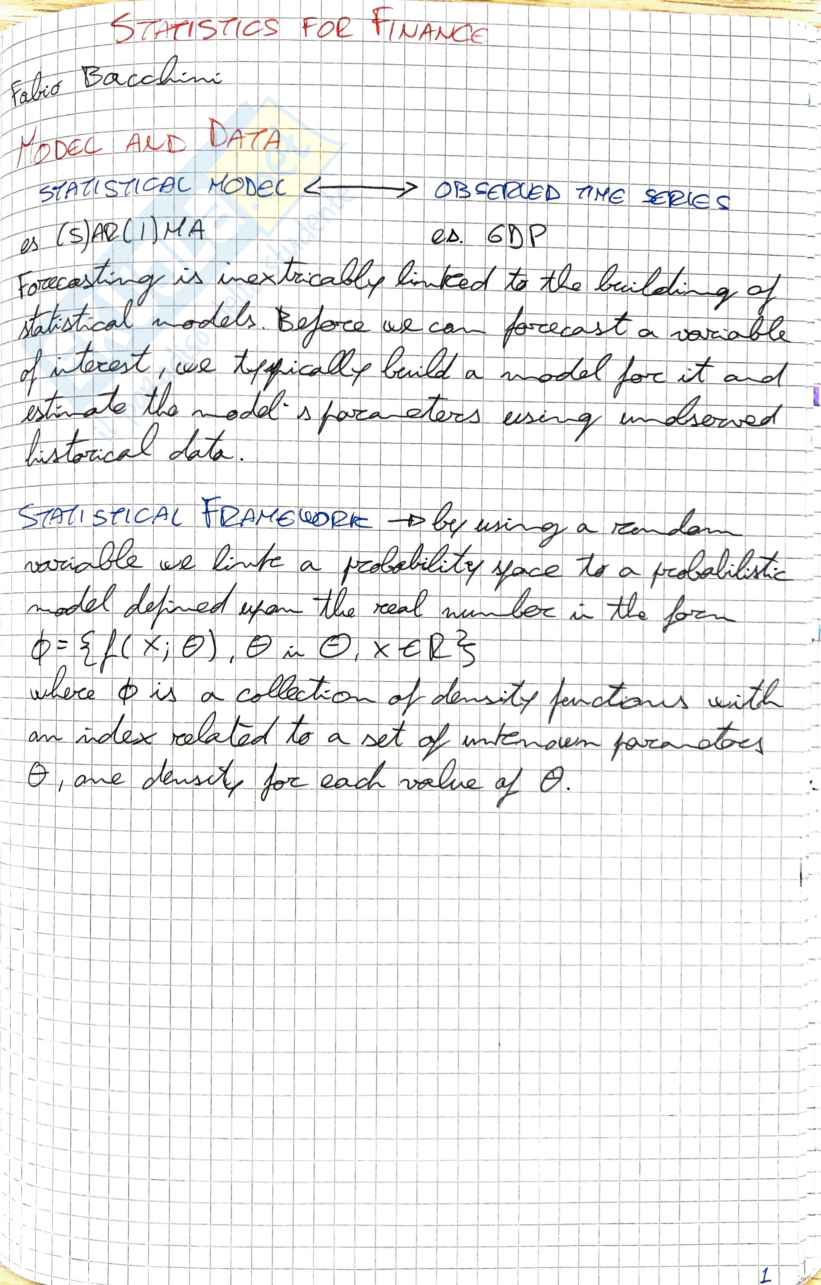 STATISTICS FOR FINANCE
Fabio Bacchini
MODEL AND DATA
STATISTICAL MODEL <-----> OBSERVED TIME SERIES
es (S)AR(I)MA es. GDP
Forecasting is inextricably linked to the building of
statistical models. Before we can forecast a variable
of interest, we typically build a model for it and
estimate the model's parameters using undserved
historical data.
STATISTICAL FRAMEWORK → by using a random
variable we link a probability space to a probabilistic
model defined upon the real number in the form
ϕ = {f(x; θ), θ in Θ, x ∈ R}
where ϕ is a collection of density functions with
an index related to a set of unknown parameters
θ, one density for each value of θ.
1